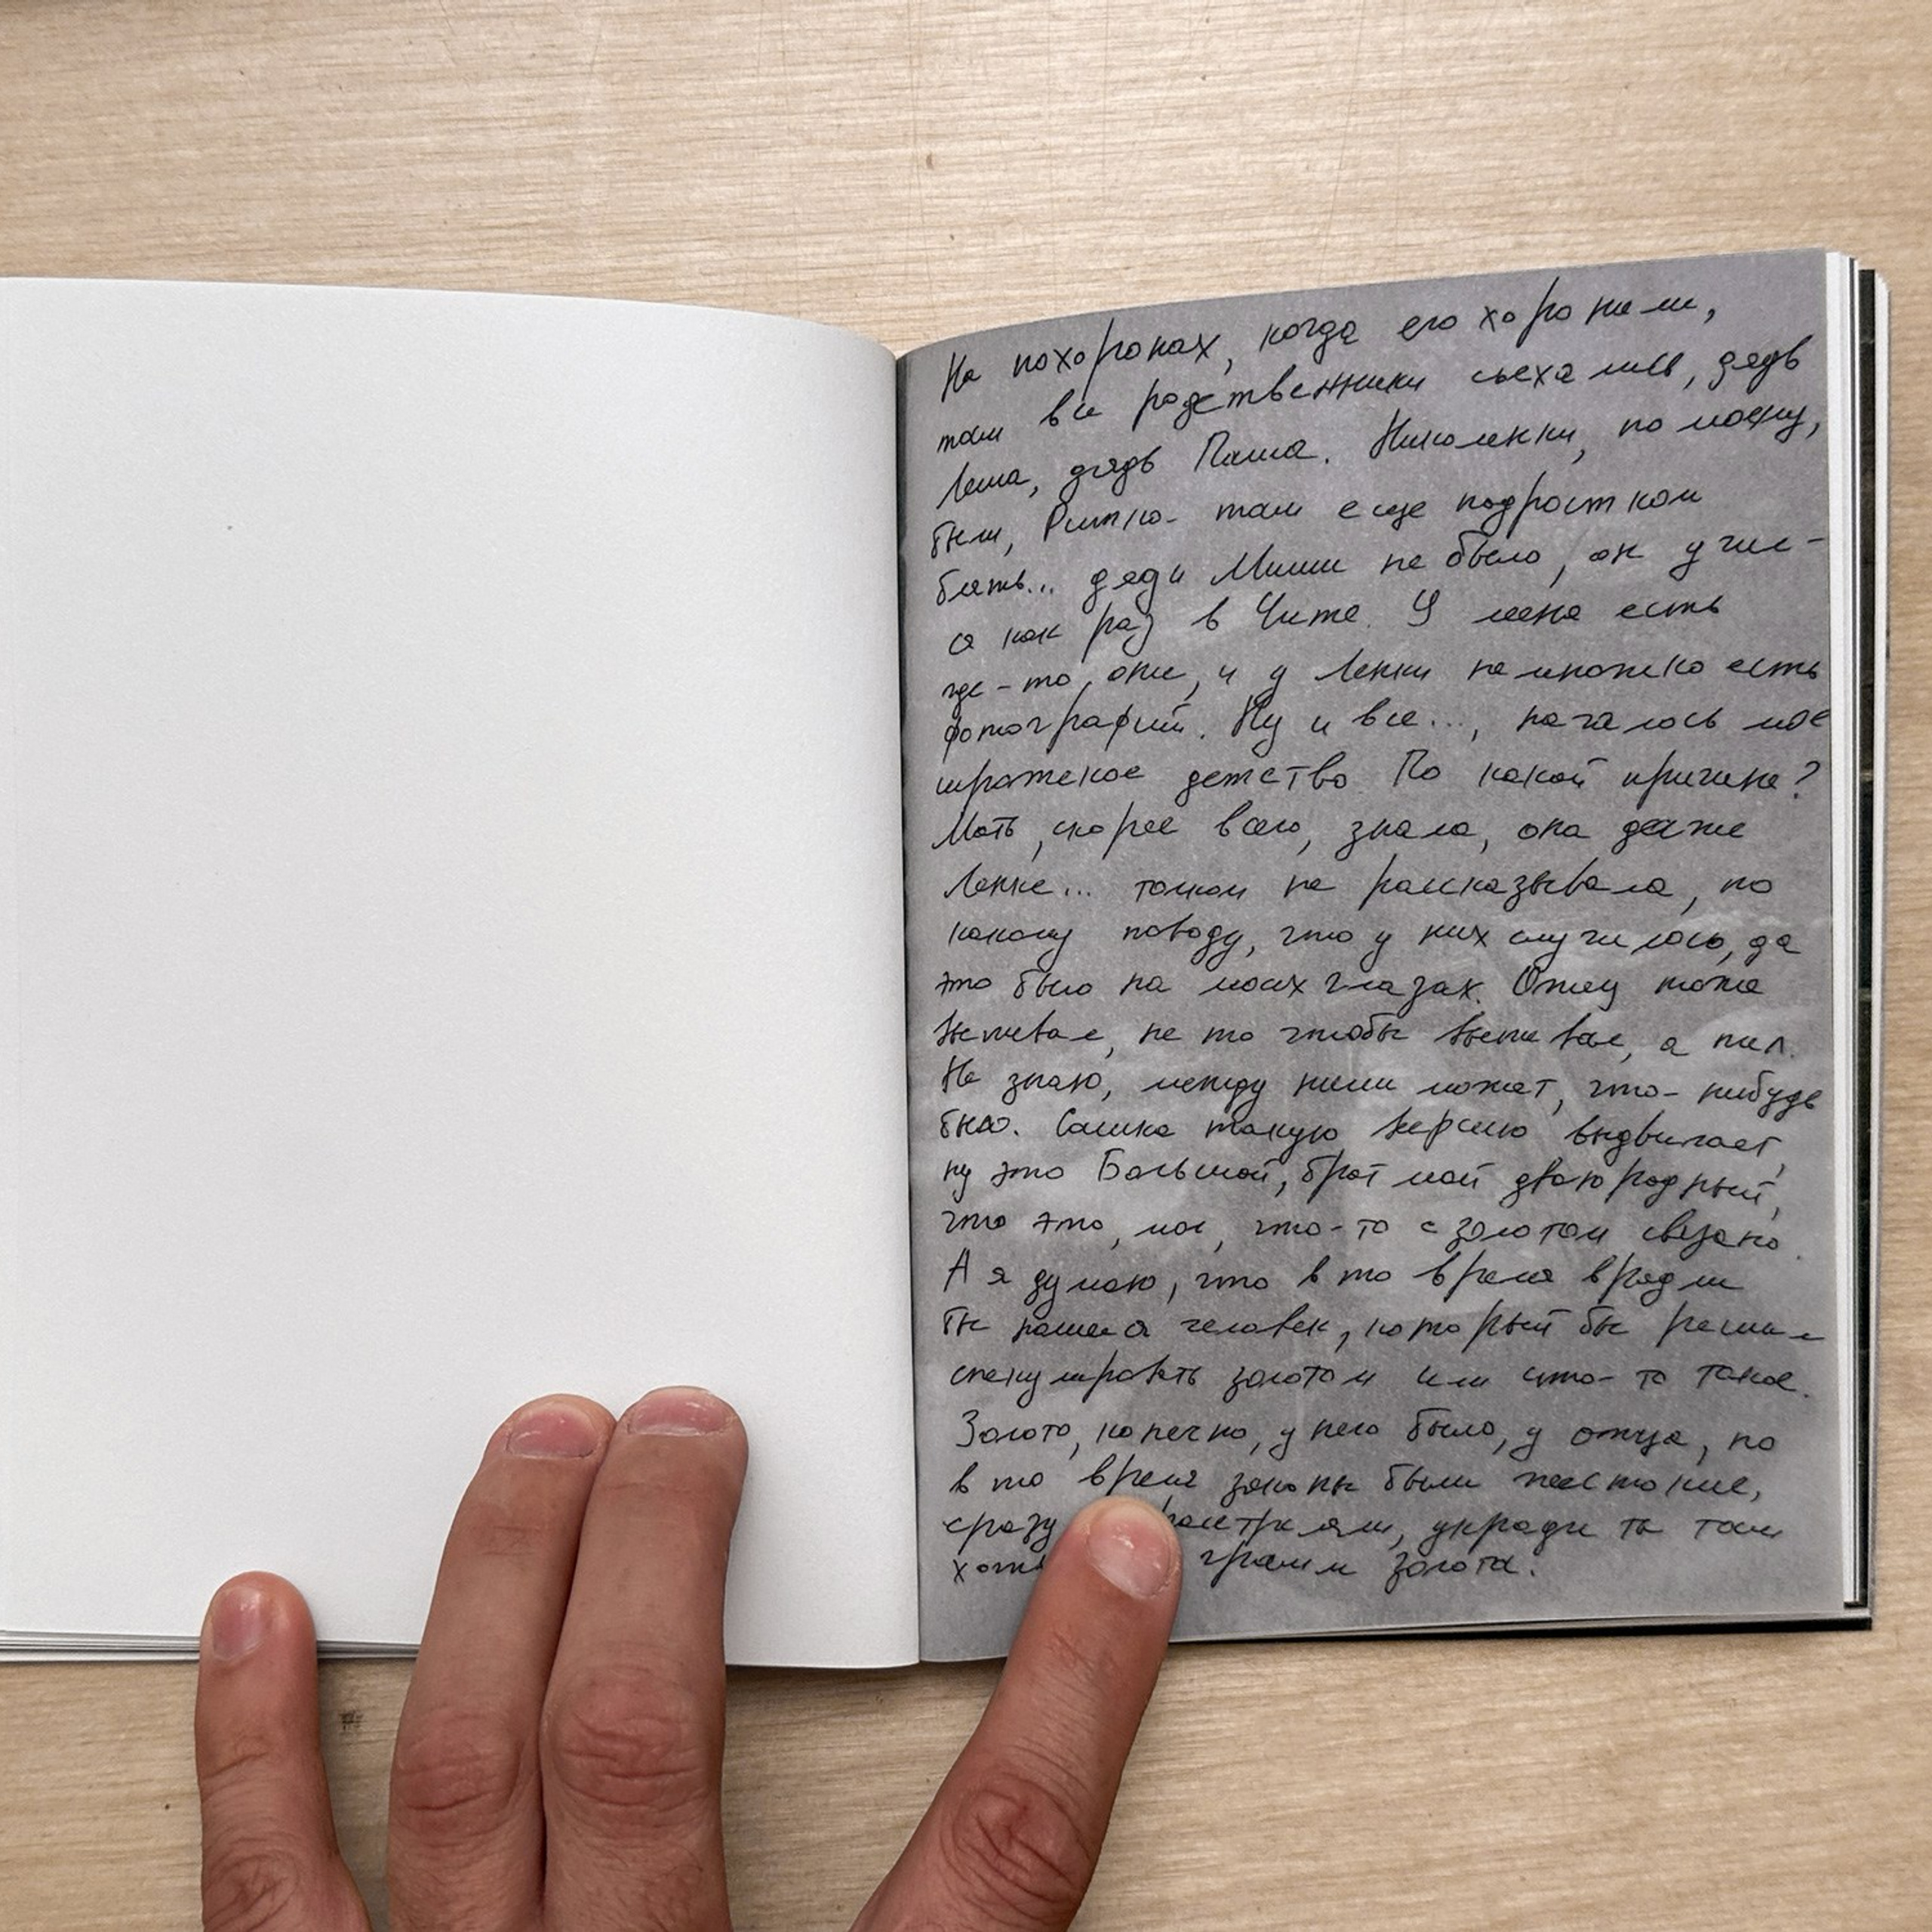 На похоронах, когда его хоронили,
там все родственники сьехались, дядь
Леша, дядь Паша. Николенки, по моему,
были, Ритка там еще подростком
блять... дяди Миши не было, он учил-
ся как раз в Чите. У меня есть
где-то, они, и у Ленки немножко есть
фотографий. Ну и все..., началось мое
пиратское детство. По какой причине?
Мать, скорее всего, знала, она даже
Ленке... толком не рассказывала, по
какому поводу, что у них случилось, да
это было на моих глазах. Отец тоже
выпивал, не то чтобы выпивал, а пил.
Не знаю, между ними может, что-нибудь
было. Сашка такую версию выдвигает,
ну это Большой, брат мой двоюродный,
что это, мол, что-то с золотом связано.
А я думаю, что в то время врядли
бы нашелся человек, который бы решил
спекулировать золотом или что-то такое.
Золото, конечно, у него было, у отца, но
в то время законы были жестокие,
сразу укради ты там
грамм золота.